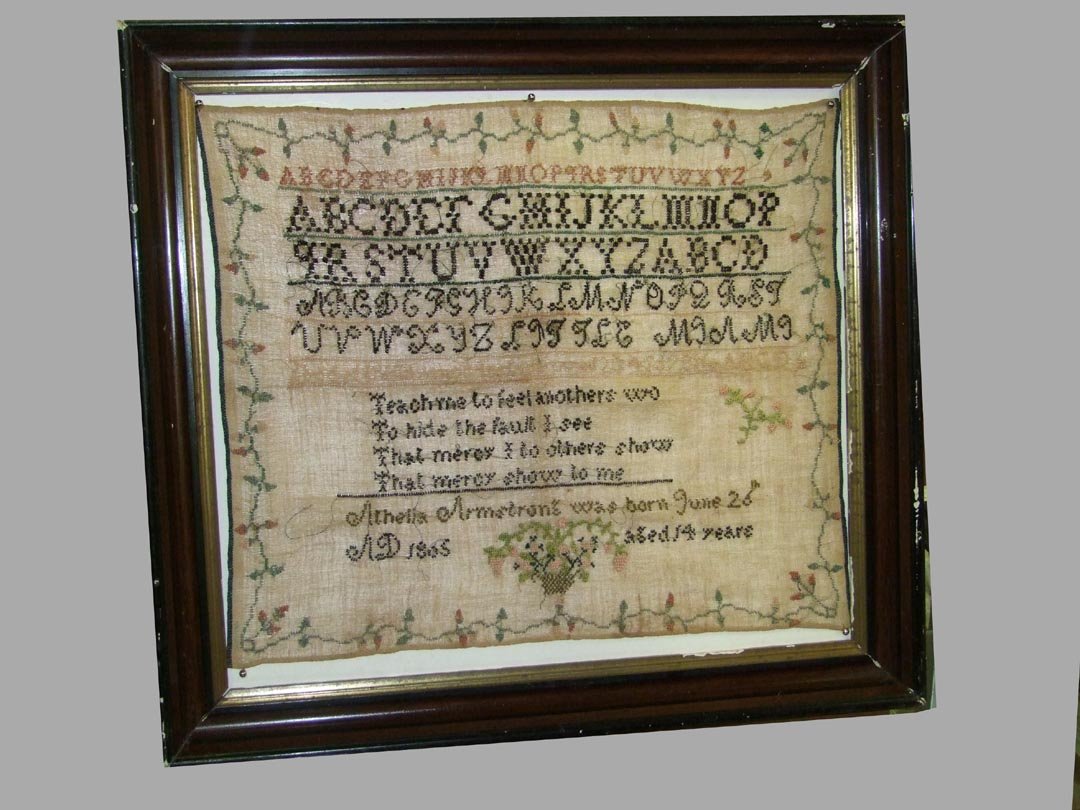 ABCDEFGHIJKLMNOPQRSTUVWXYZ
ABCDEF GHIJKLMNOP
QRSTUVWXYZABCD
ABCDEFGHIKLMNOPQRST
UVWXYZ LITTLE MIAMI
Teach me to feel anothers wo
To hide the fault I see
That mercy I to others show
That mercy show to me
Athelia Armstrong was born June 26th
AD 1806 aged 14 years